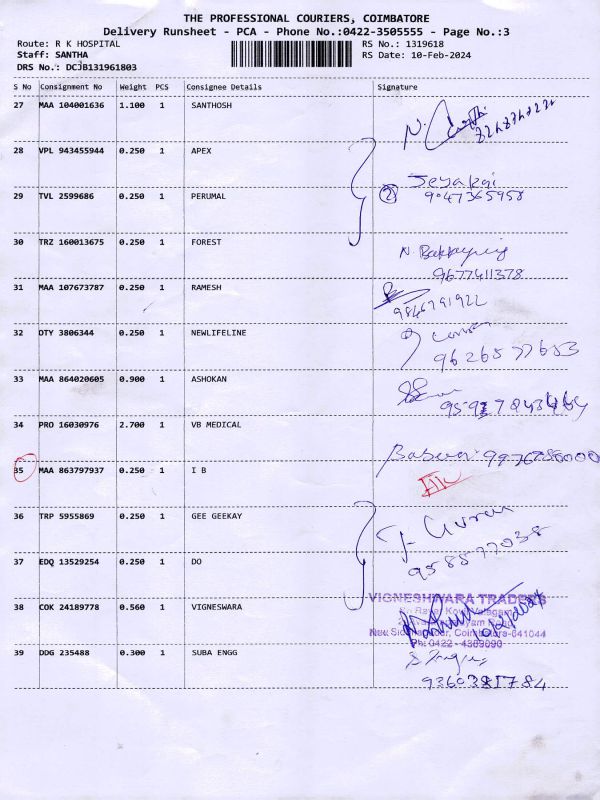 THE PROFESSIONAL COURIERS, COIMBATORE
Delivery Runsheet - PCA - Phone No.:0422-3505555 - Page No.:3
Route: R K HOSPITAL
RS No.: 1319618
Staff: SANTHA
RS Date: 10-Feb-2024
DRS No.: DCJB131961803
S No Consignment No Weight PCS Consignee Details Signature
27 MAA 104001636 1.100 1 SANTHOSH
28 VPL 943455944 0.250 1 APEX
Jeyakai
29 TVL 2599686 0.250 1 PERUMAL
2 9047365958
30 TRZ 160013675 0.250 1 FOREST
N.
9677411378
31 MAA 107673787 0.250 1 RAMESH
9846791922
32 DTY 3806344 0.250 1 NEWLIFELINE
9626577653
33 MAA 864020605 0.900 1 ASHOKAN
34 PRO 16030976 2.700 1 VB MEDICAL
35 MAA 863797937 0.250 1 I B
36 TRP 5955869 0.250 1 GEE GEEKAY
37 EDQ 13529254 0.250 1 DO
9585577038
38 COK 24189778 0.560 1 VIGNESWARA
VIGNESHWARA TRADERS
Coimbatore-641044
Ph: 0422 - 4369090
39 DDG 235488 0.300 1 SUBA ENGG
9360381784